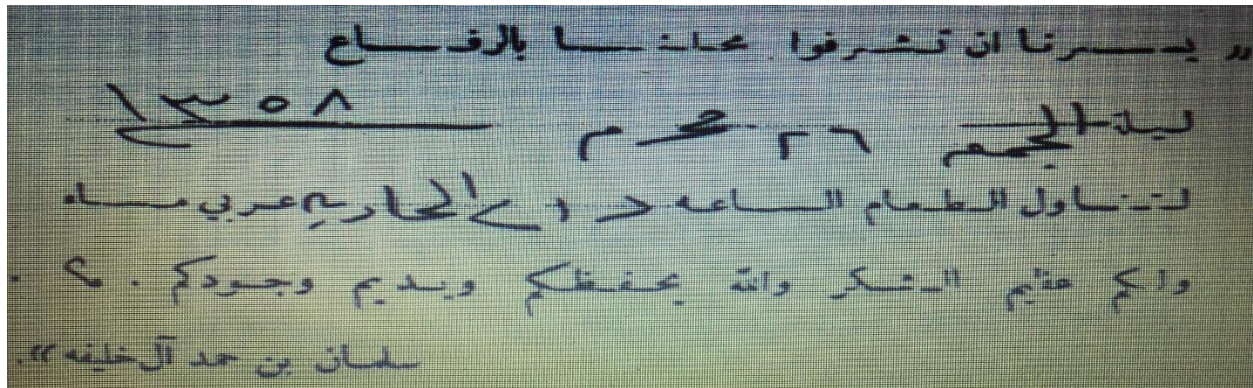 « يسرنا ان تشرفوا محلنا بالرفاع
ليلة الجمعة ٢٦ محرم ١٣٥٨
لتناول الطعام الساعه عربي مساء
ولكم عظيم الشكر والله يحفظكم ويديم وجودكم .
سلمان بن حمد آل خليفه ».